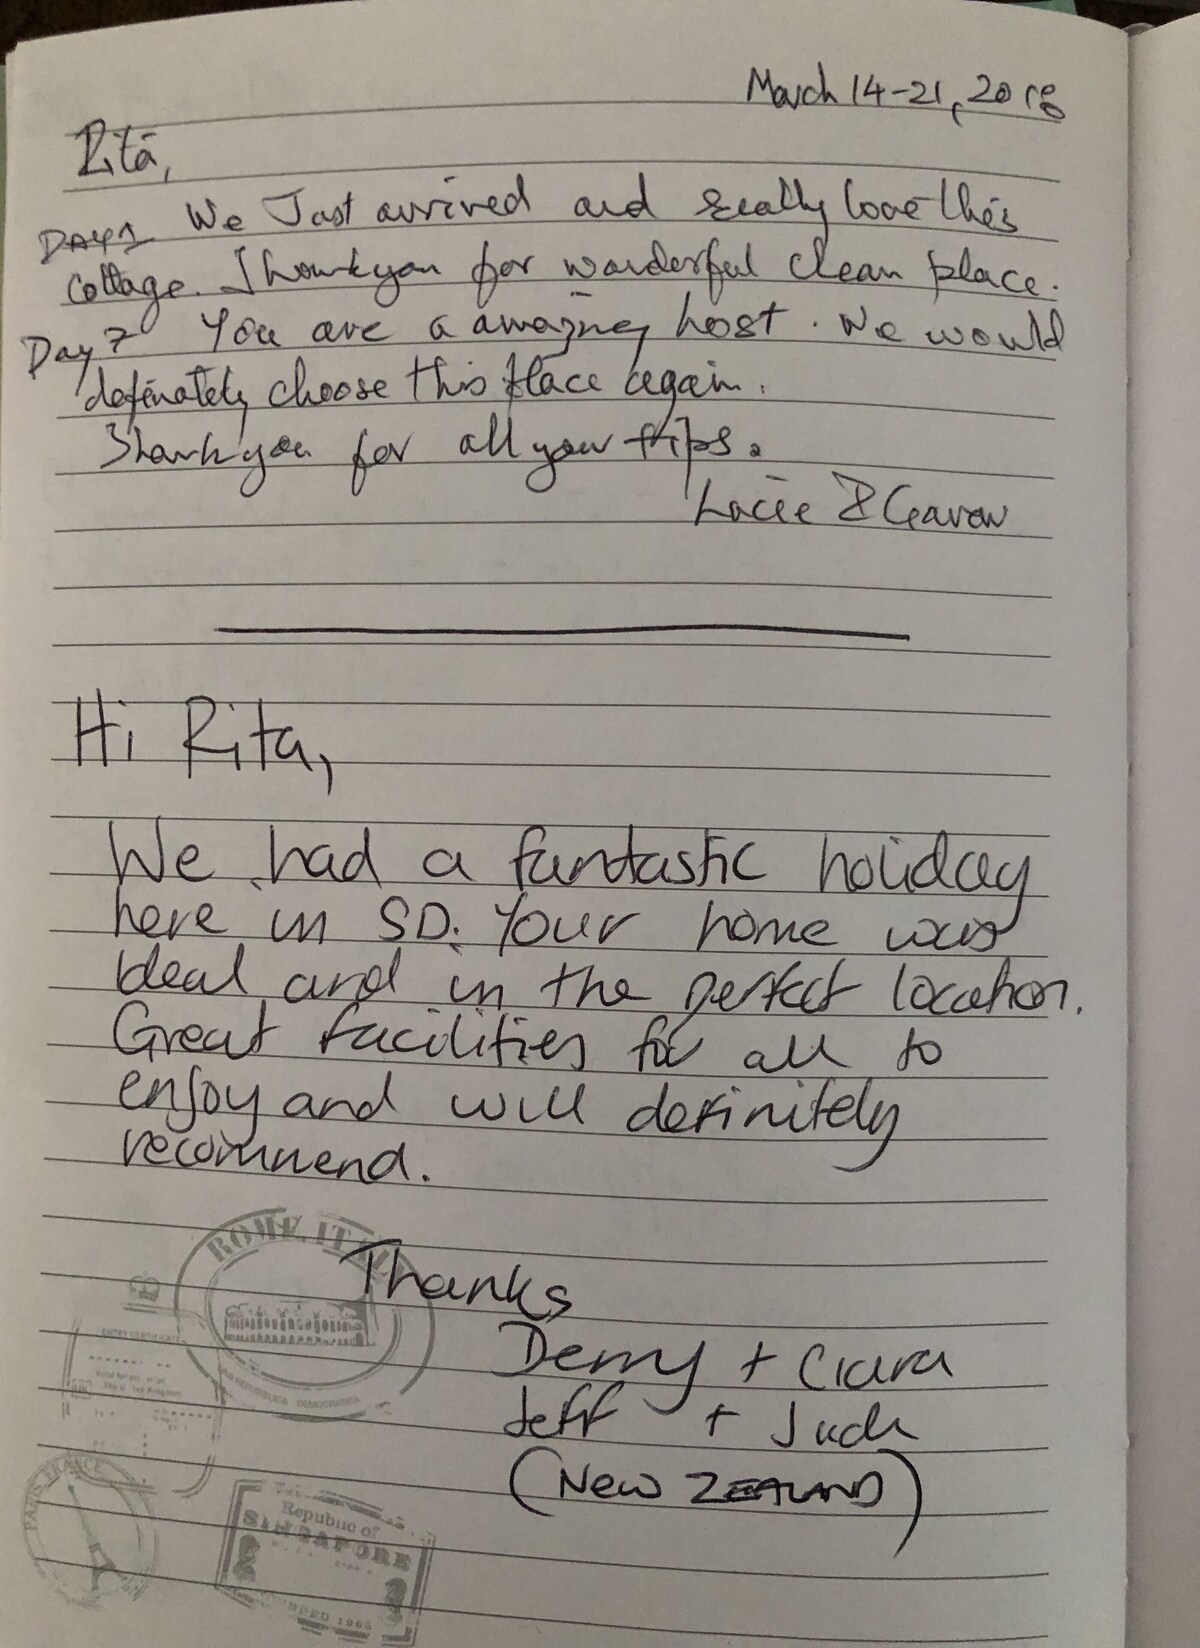 March 14-21, 2018
Rita,
DAY1 We Just arrived and really love this
Cottage. Thankyou for wonderful clean place.
Day 7 You are a amazing host. We would
definately choose this place again.
Thankyou for all your tips.
Lacee &
Hi Rita,
We had a fantastic holiday
here in SD. Your home was
ideal and in the perfect location.
Great facilities for all to
enjoy and will definitely
recommend.
ROME, ITAL
Thanks
ENTRY CERTIFICATE
+ Ciara
DEMOCRATICA
Jeff + Judi
(New ZEALAND)
PARIS FRANCE
Republic of
SINGAPORE
1965